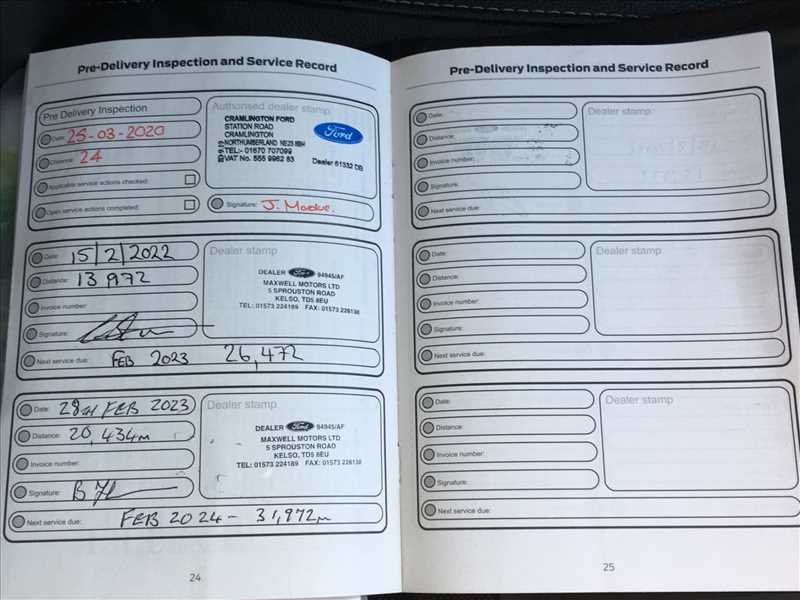 Pre-Delivery Inspection and Service Record
Pre Delivery Inspection
Date: 25-03-2020
Distance: 24
Applicable service actions checked:
Open service actions completed:
Authorised dealer stamp
CRAMLINGTON FORD
STATION ROAD
CRAMLINGTON
NORTHUMBERLAND NE23 8BH
TEL:- 01670 707099
VAT No. 555 9962 63
Ford
Dealer 61332 DB
Signature: J.
Date: 15/2/2022
Distance: 13 972
Invoice number:
Signature:
Next service due: FEB 2023 26,472
Dealer stamp
DEALER Ford 94945/AF
MAXWELL MOTORS LTD
5 SPROUSTON ROAD
KELSO, TD5 8EU
TEL: 01573 224189 FAX: 01573 226138
Date: 28TH FEB 2023
Distance: 20,434m
Invoice number:
Signature:
Next service due: FEB 2024 - 31,972m
Dealer stamp
DEALER Ford 94945/AF
MAXWELL MOTORS LTD
5 SPROUSTON ROAD
KELSO, TD5 8EU
TEL: 01573 224189 FAX: 01573 226138
24
Pre-Delivery Inspection and Service Record
Date:
Distance:
Invoice number:
Signature:
Next service due:
Dealer stamp
Date:
Distance:
Invoice number:
Signature:
Next service due:
Dealer stamp
Date:
Distance:
Invoice number:
Signature:
Next service due:
Dealer stamp
25